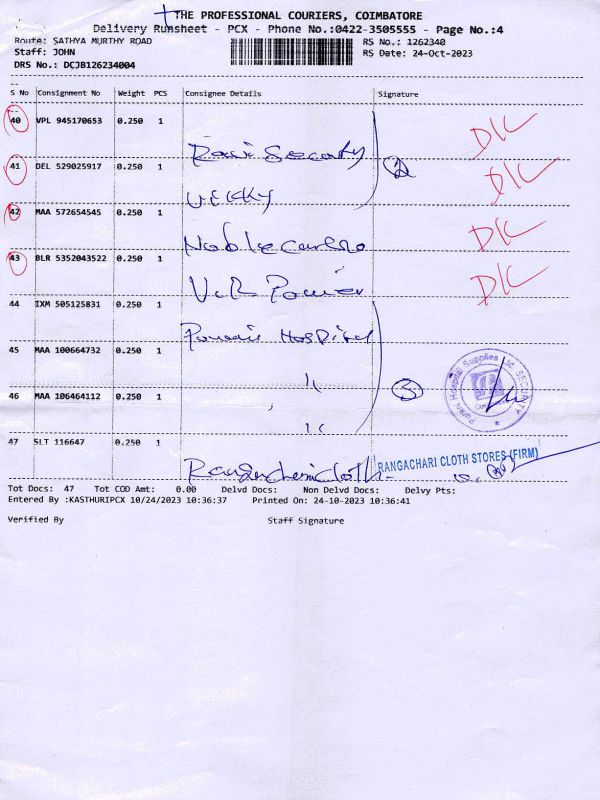 THE PROFESSIONAL COURIERS, COIMBATORE
Delivery Runsheet - PCX - Phone No.:0422-3505555 - Page No.:4
Route: SATHYA MURTHY ROAD RS No.: 1262340
Staff: JOHN RS Date: 24-Oct-2023
DRS No.: DCJB126234004
S No Consignment No Weight PCS Consignee Details Signature
40 VPL 945170653 0.250 1
DL
41 DEL 529025917 0.250 1
DL
Vikky
42 MAA 572654545 0.250 1
DL
Noble
43 BLR 5352043522 0.250 1
DL
Power
44 IXM 505125831 0.250 1
Hospital
45 MAA 100664732 0.250 1
Hospital Supplies Ltd SECURITY
46 MAA 106464112 0.250 1
3
47 SLT 116647 0.250 1
RANGACHARI CLOTH STORES (FIRM)
Tot Docs: 47 Tot COD Amt: 0.00 Delvd Docs: Non Delvd Docs: Delvy Pts:
Entered By :KASTHURIPCX 10/24/2023 10:36:37 Printed On: 24-10-2023 10:36:41
Verified By Staff Signature